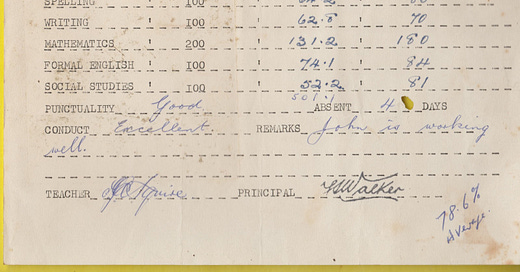 SPELLING 100 64.2 80
WRITING 100 62.8 70
MATHEMATICS 200 131.2 180
FORMAL ENGLISH 100 74.1 84
SOCIAL STUDIES 100 52.2 81
501.1
PUNCTUALITY Good ABSENT 4 DAYS
CONDUCT Excellent. REMARKS John is working
well.
TEACHER PRINCIPAL Walker
78.6%
Average.